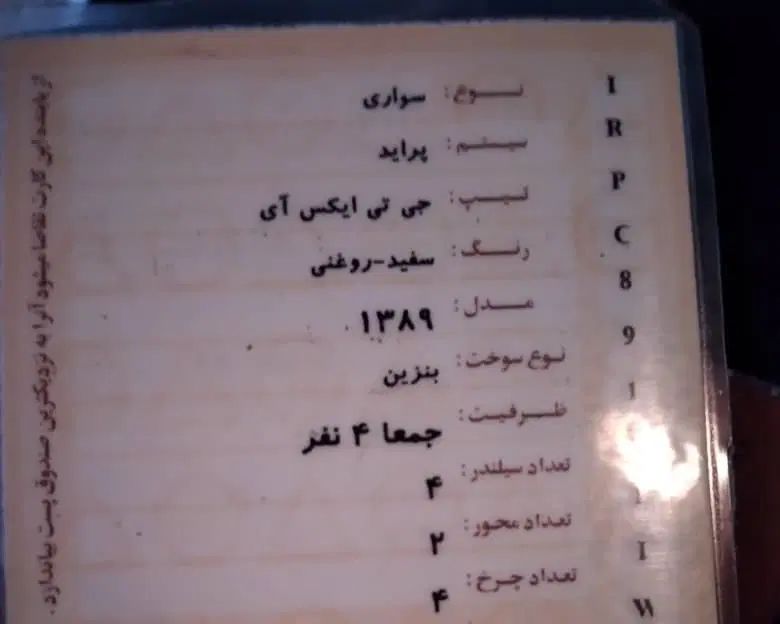 نوع: سواری
سیستم: پراید
تیپ: جی تی ایکس آی
رنگ: سفید-روغنی
مدل: ۱۳۸۹
نوع سوخت: بنزین
ظرفیت: جمعا ۴ نفر
تعداد سیلندر: ۴
تعداد محور: ۲
تعداد چرخ: ۴
I
R
P
C
8
9
1
I
W
از یابنده این کارت تقاضا میشود آنرا به نزدیکترین صندوق پست بیاندازد.